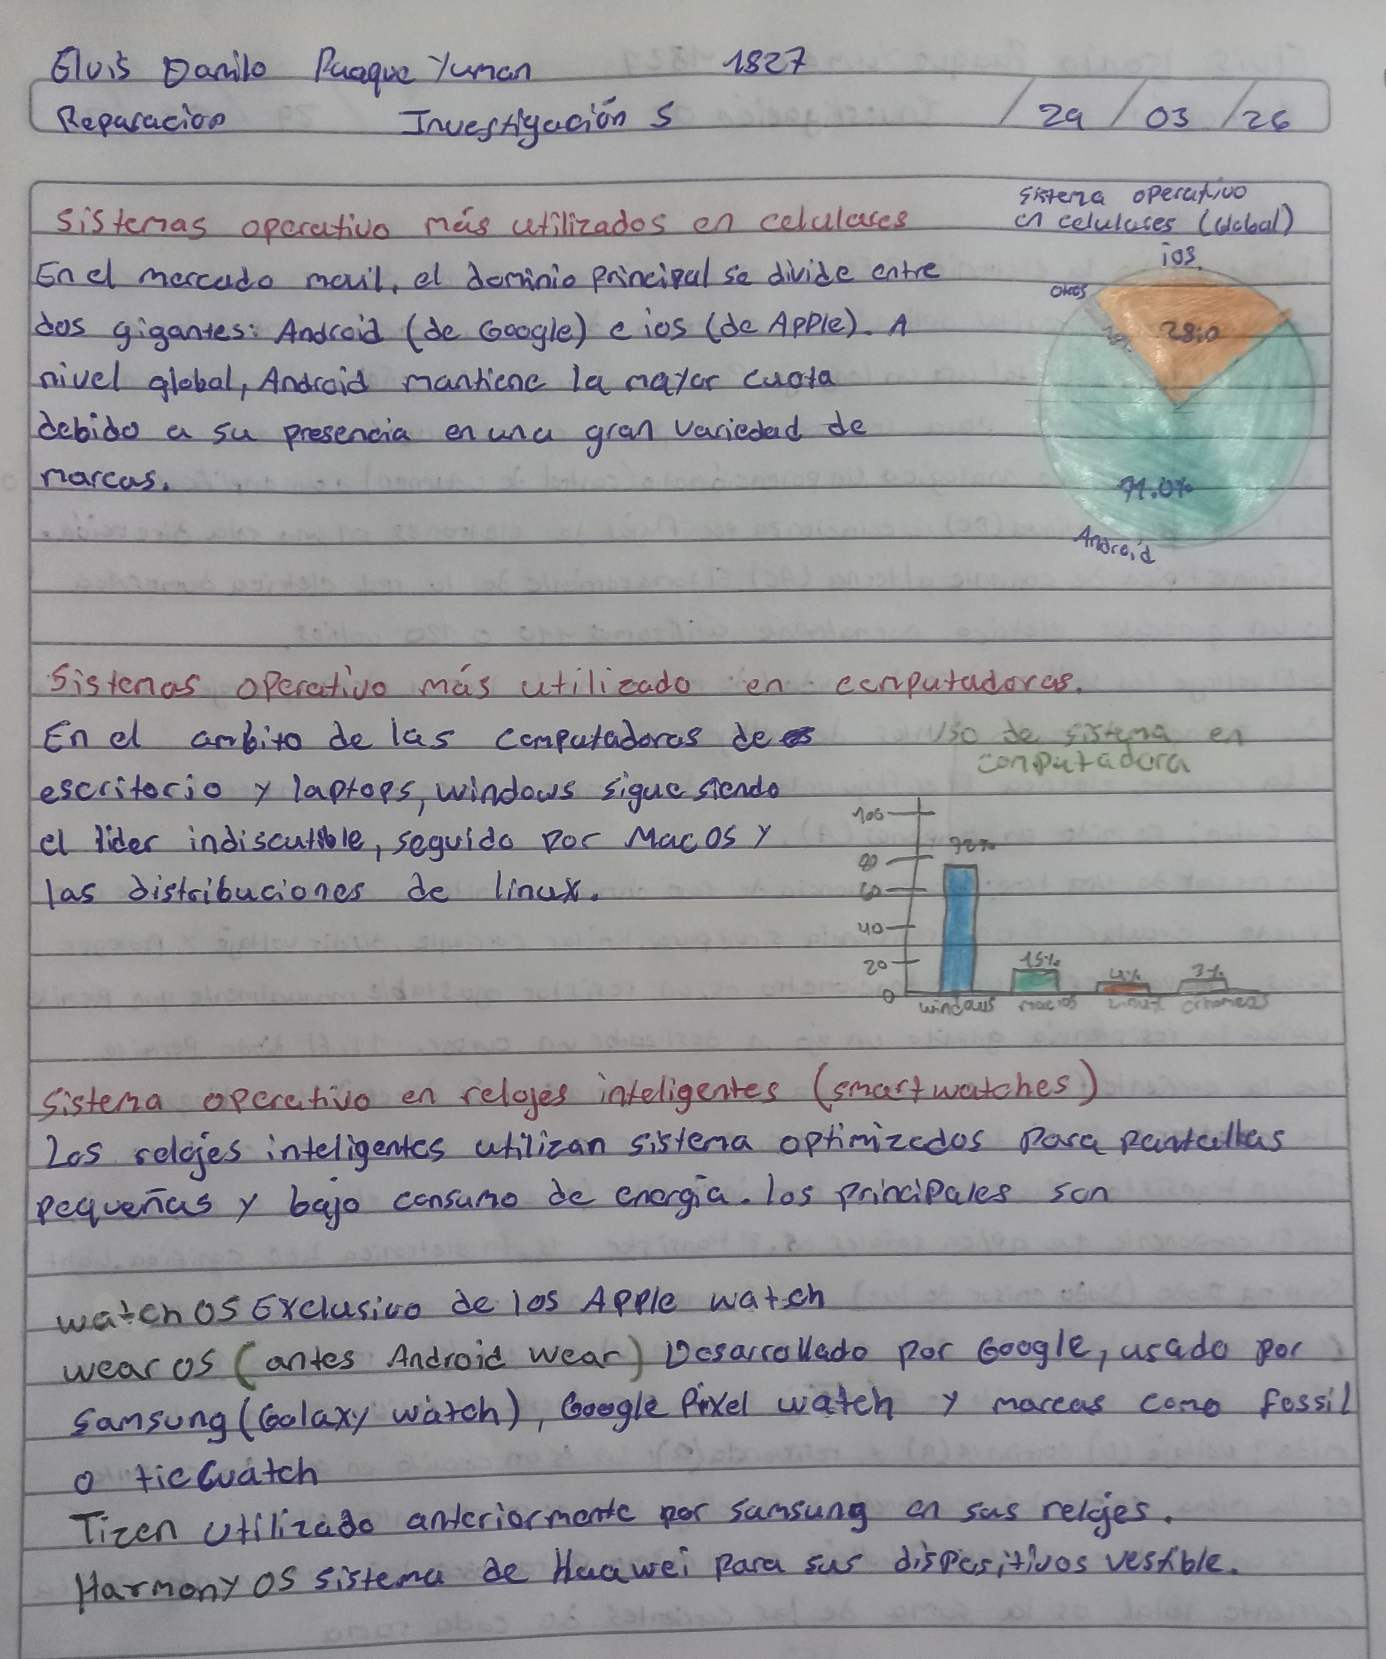 Elvis Danilo Puaque Yuman 1827
Reparacion Investigación 5 / 29 / 03 / 26
Sistemas operativo más utilizados en celulares
En el mercado movil, el dominio principal se divide entre
dos gigantes: Android (de Google) e ios (de Apple). A
nivel global, Android mantiene la mayor cuota
debido a su presencia en una gran variedad de
marcas.
Sistema operativo
en celulares (Global)
ios
otros
28.0
71.0%
Android
Sistemas operativo más utilizado en computadoras.
En el ambito de las computadoras de
escritorio y laptops, windows sigue siendo
el lider indiscutible, seguido por Mac OS y
las distribuciones de linux.
Uso de sistema en
computadora
100
80
60
40
20
0
15%
4%
3%
windows mac os Linux
Sistema operativo en relojes inteligentes (smartwatches)
Los relojes inteligentes utilizan sistema optimizados para pantallas
pequeñas y bajo consumo de energia. los principales son
watch OS Exclusivo de los Apple watch
wear OS (antes Android wear) Desarrollado por Google, usado por
Samsung (Galaxy watch), Google Pixel watch y marcas como fossil
o ticwatch
Tizen utilizado anteriormente por samsung en sus relojes.
Harmony OS sistema de Huawei para sus dispositivos vestible.